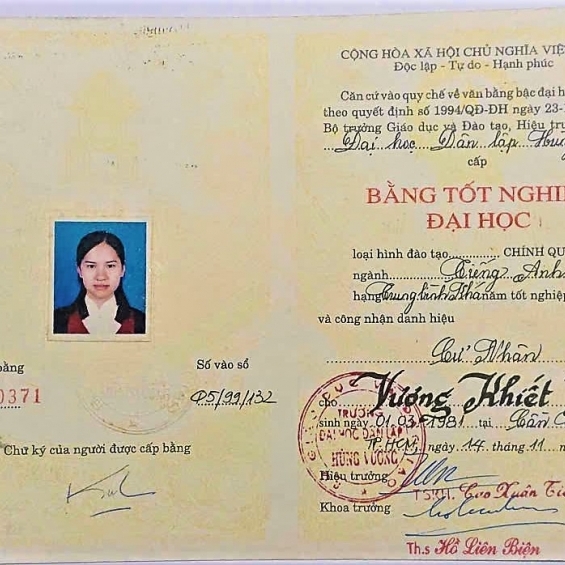 bằng
0371
Số vào sổ
05/99/132
Chữ ký của người được cấp bằng
CỘNG HÒA XÃ HỘI CHỦ NGHĨA VIỆ
Độc lập - Tự do - Hạnh phúc
Căn cứ vào quy chế về văn bằng bậc đại h
theo quyết định số 1994/QĐ-ĐH ngày 23-1
Bộ trưởng Giáo dục và Đào tạo, Hiệu trư
Đại học Dân lập Hùng
cấp
BẰNG TỐT NGHI
ĐẠI HỌC
loại hình đào tạo CHÍNH QU
ngành Tiếng Anh
hạng Trung bình Khá năm tốt nghiệp
và công nhận danh hiệu
Cử Nhân
cho Vương Khiết
sinh ngày 01.03.1981 tại Cần
TP.HCM, ngày 14 tháng 11 n
TRƯỜNG
ĐẠI HỌC DÂN LẬP
HÙNG VƯƠNG
Hiệu trưởng
TSKH. Cao Xuân
Khoa trưởng
Th.s Hồ Liên Biện